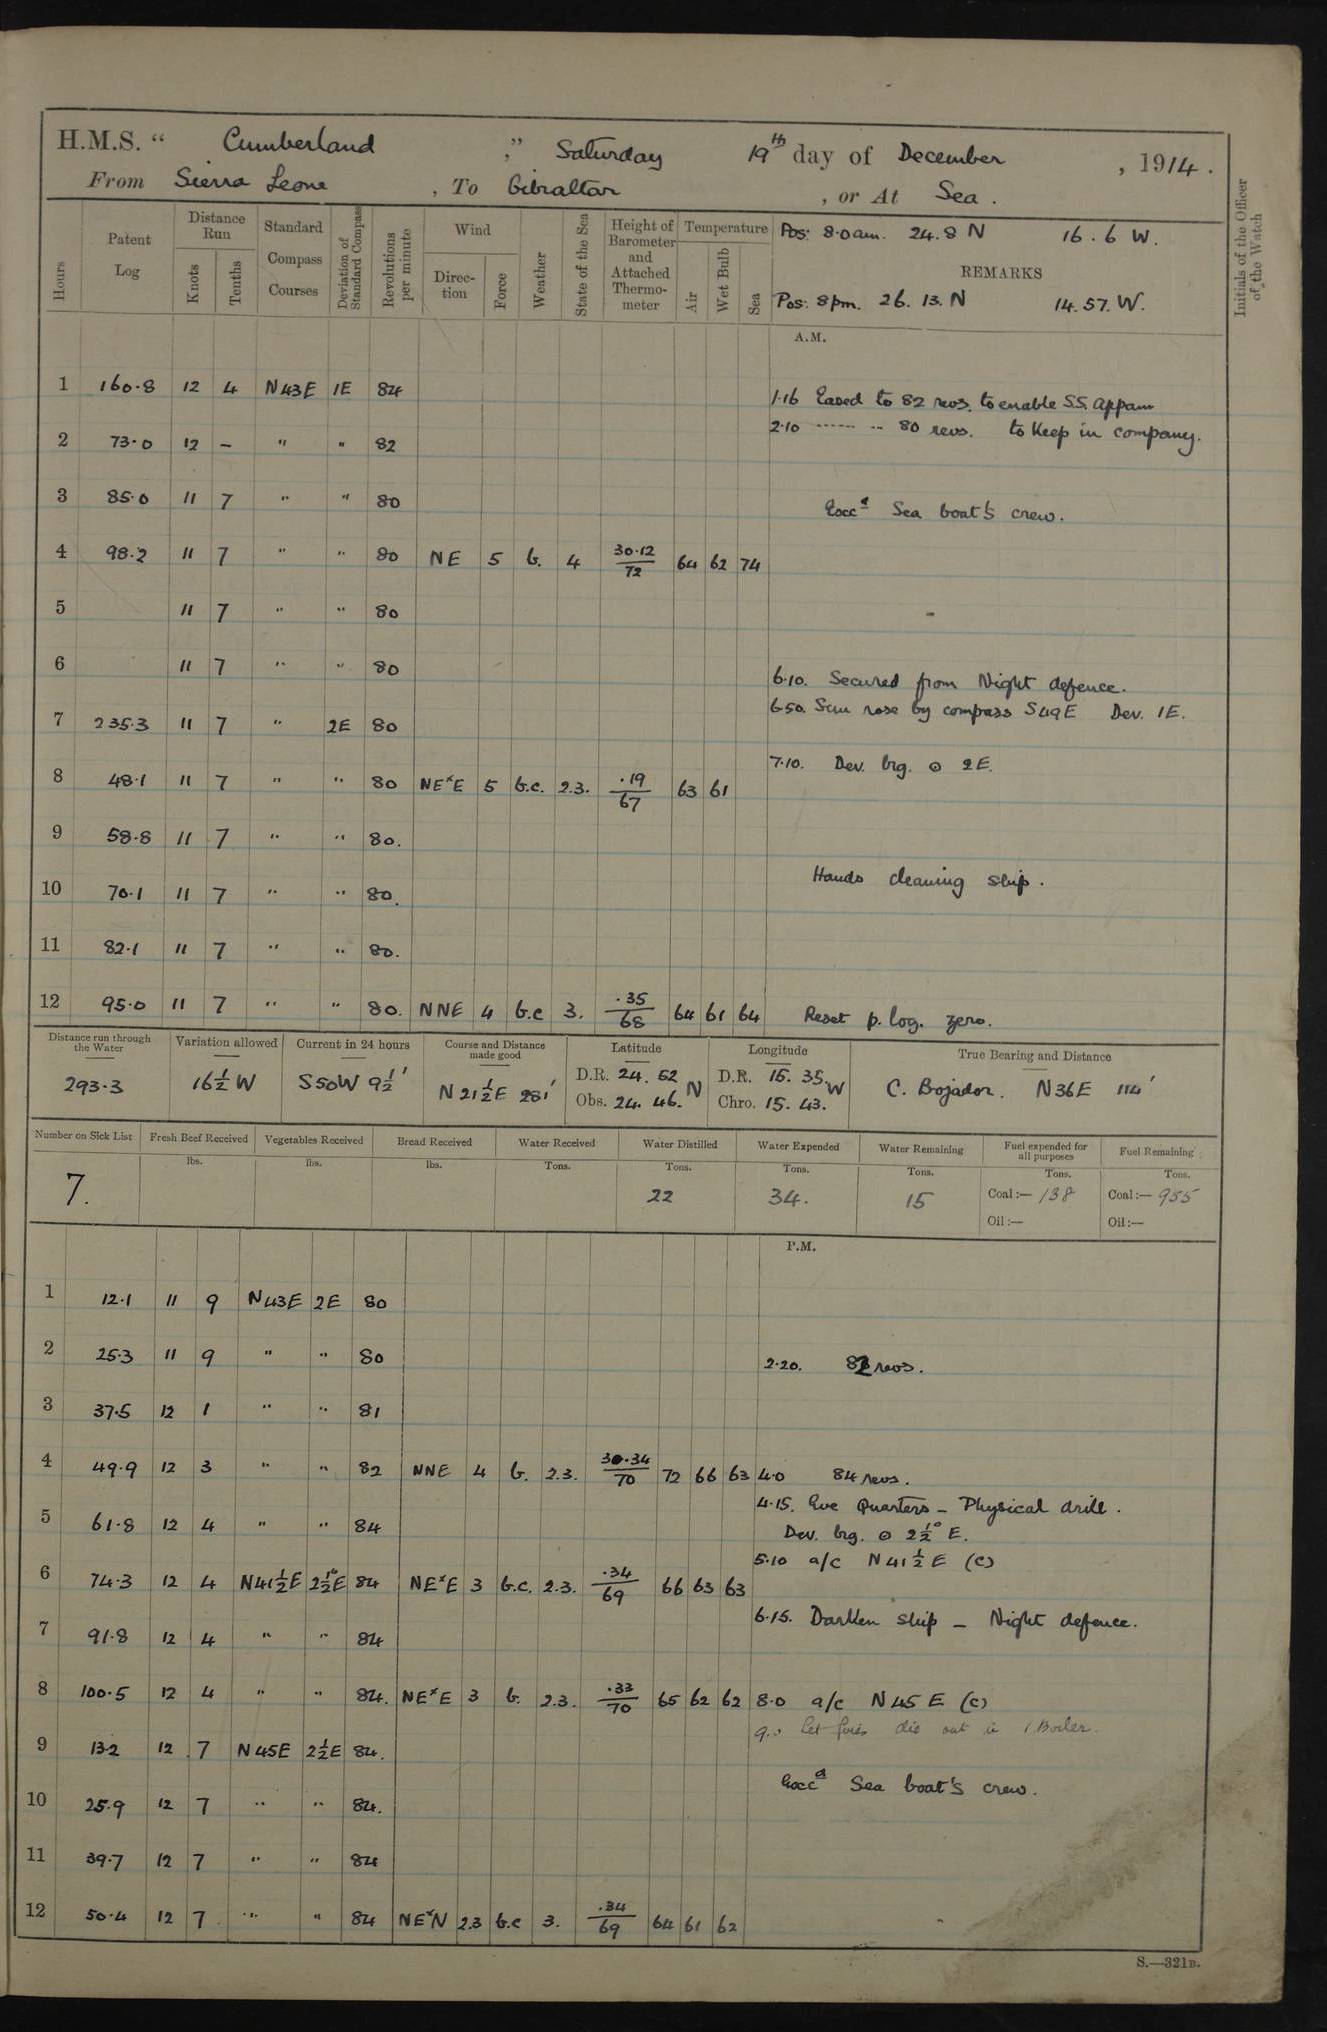 H.M.S. “ Cumberland ,” Saturday 19th day of December , 1914.
From Sierra Leone , To Gibraltar , or At Sea .
Hours Patent Log Distance Run Knots Tenths Standard Compass Courses Deviation of Standard Compass Revolutions per minute Wind Direction Force Weather State of the Sea Height of Barometer and Attached Thermometer Temperature Air Wet Bulb Sea REMARKS Initials of the Officer of the Watch
Pos: 8.0 am. 24.8 N 16.6 W.
Pos: 8pm. 26.13.N 14.57.W.
A.M.
1 160.8 12 4 N43E 1E 84
1.16 Eased to 82 revs. to enable S.S. Appam
2.10 ------ -- 80 revs. to keep in company.
2 73.0 12 - " " 82
3 85.0 11 7 " " 80
Exercd Sea boat's crew.
4 98.2 11 7 " " 80 NE 5 b. 4 30.12/72 64 62 74
5 11 7 " " 80
6 11 7 " " 80
6.10. Secured from Night defence.
6.50. Sun rose by compass S49E Dev. 1E.
7 235.3 11 7 " 2E 80
7.10. Dev. brg. ⊙ 2E.
8 48.1 11 7 " " 80 NExE 5 b.c. 2.3. .19/67 63 61
9 58.8 11 7 " " 80.
Hands cleaning ship.
10 70.1 11 7 " " 80.
11 82.1 11 7 " " 80.
12 95.0 11 7 " " 80. NNE 4 b.c 3. .35/68 64 61 64 Reset p. log. zero.
Distance run through the Water Variation allowed Current in 24 hours Course and Distance made good Latitude Longitude True Bearing and Distance
293.3 16½ W S50W 9½' N21½E 281' D.R. 24.52 Obs. 24.46. N D.R. 15.35. Chro. 15.43. W C. Bojador. N36E 114'
Number on Sick List Fresh Beef Received Vegetables Received Bread Received Water Received Water Distilled Water Expended Water Remaining Fuel expended for all purposes Fuel Remaining
lbs. lbs. lbs. Tons. Tons. Tons. Tons. Tons. Tons.
7. 22 34. 15 Coal:— 138 Coal:— 955
Oil:— Oil:—
P.M.
1 12.1 11 9 N43E 2E 80
2 25.3 11 9 " " 80 2.20. 82 revs.
3 37.5 12 1 " " 81
4 49.9 12 3 " " 82 NNE 4 b. 2.3. 30.34/70 72 66 63 4.0 84 revs.
4.15. Eve Quarters - Physical drill.
5 61.8 12 4 " " 84 Dev. brg. ⊙ 2½° E.
5.10 a/c N41½E (C)
6 74.3 12 4 N41½E 2½°E 84 NExE 3 b.c. 2.3. .34/69 66 63 63
6.15. Darken ship - Night defence.
7 91.8 12 4 " " 84
8 100.5 12 4 " " 84. NExE 3 b. 2.3. .33/70 65 62 62 8.0 a/c N45E (C)
9.0 Let fires die out in 1 Boiler.
9 13.2 12 7 N45E 2½E 84.
Exercd Sea boat's crew.
10 25.9 12 7 " " 84.
11 39.7 12 7 " " 84
12 50.4 12 7 " " 84 NExN 2.3 b.c 3. .34/69 64 61 62
S.—321B.